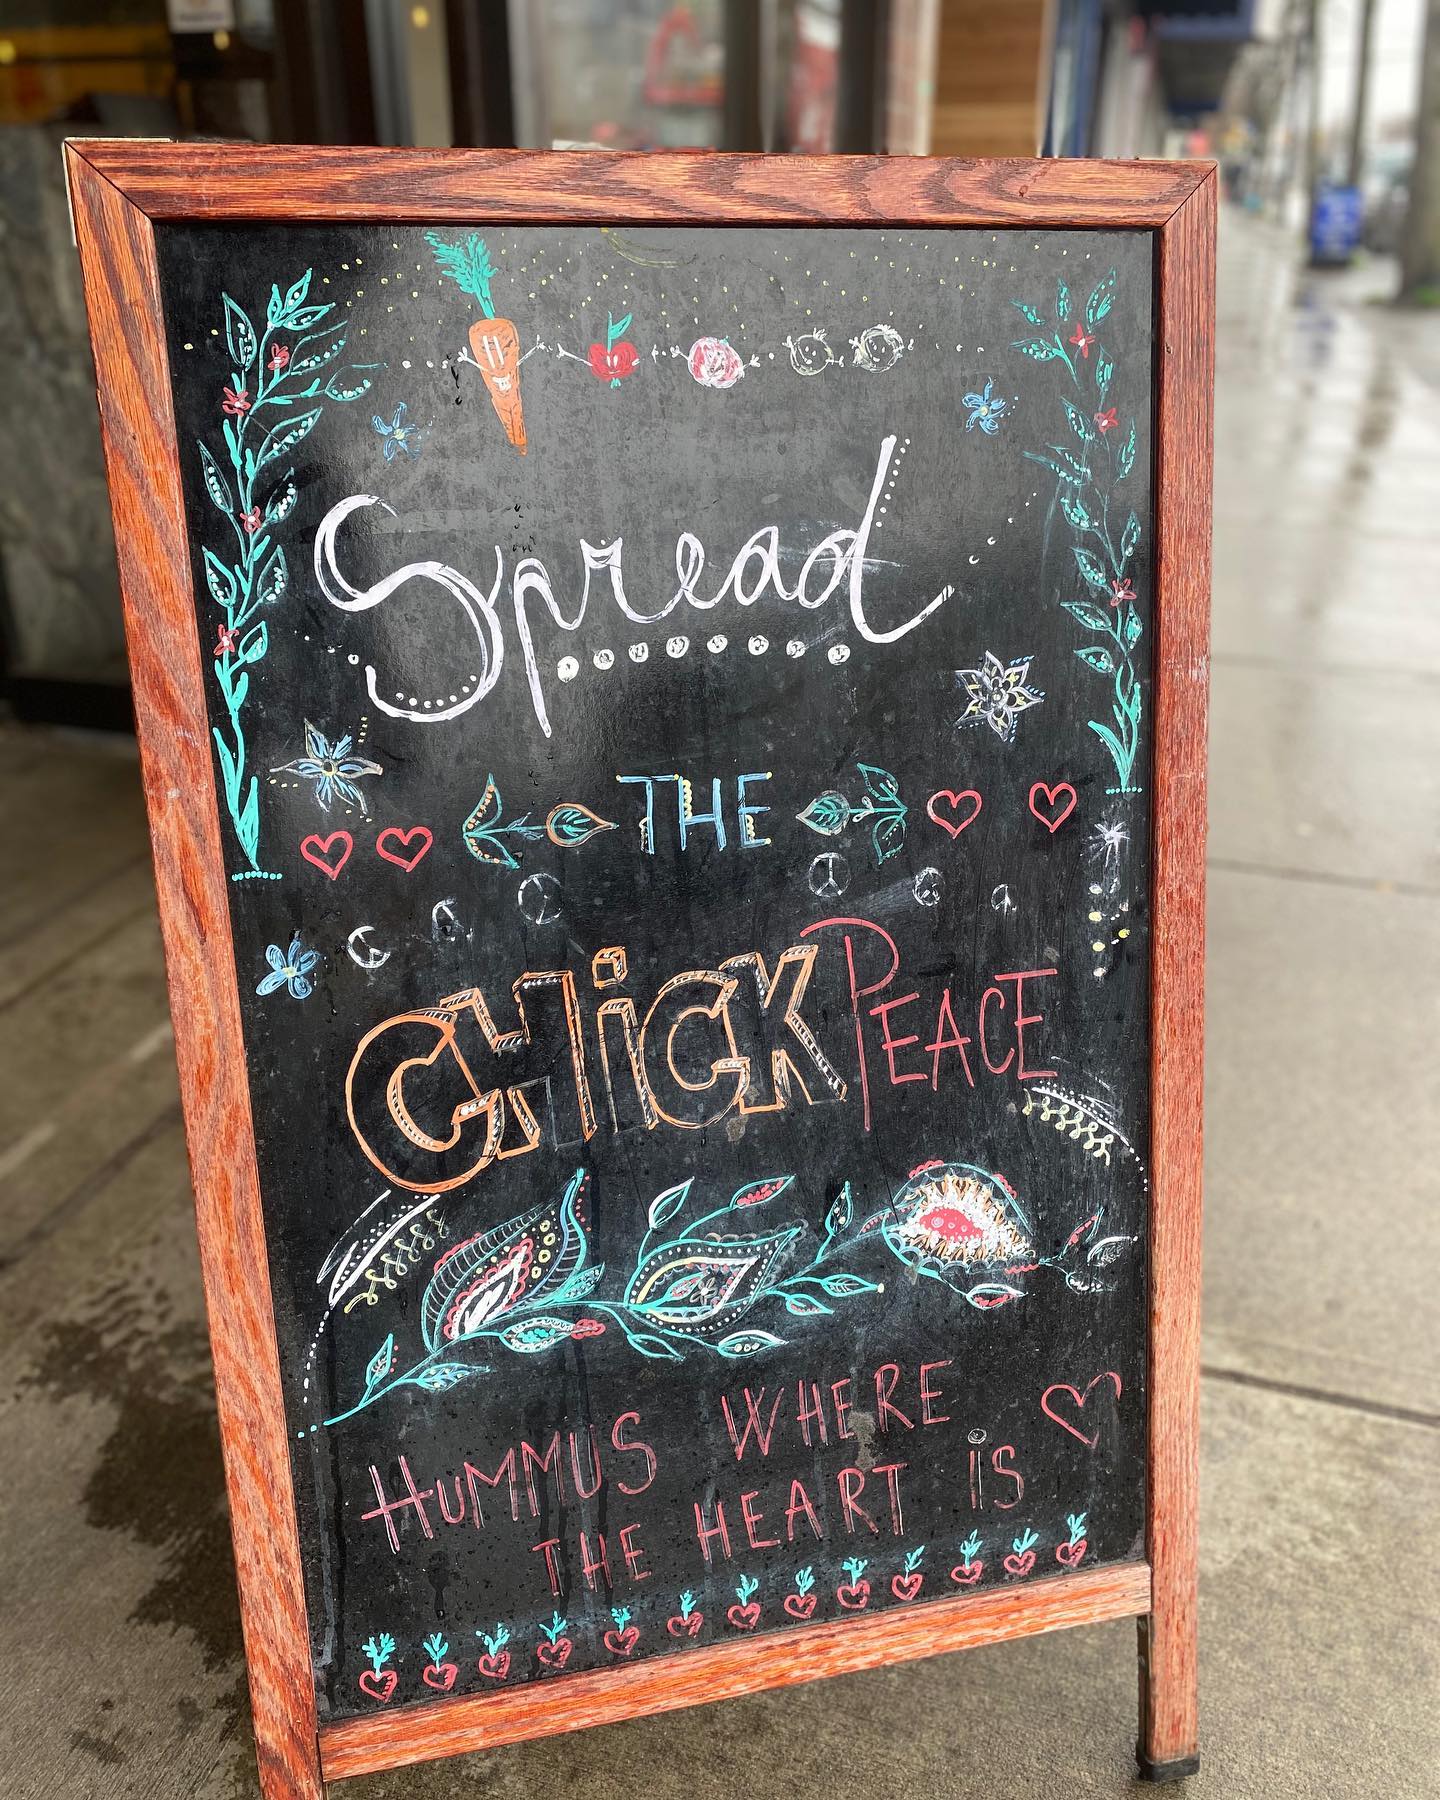 Spread
THE
CHiCKPEACE
HUMMUS WHERE
THE HEART iS